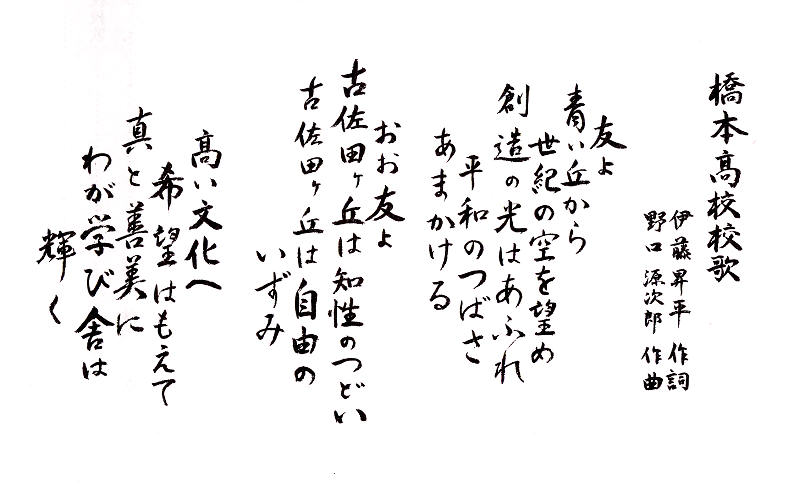 橋本高校校歌
伊藤昇平 作詞
野口源次郎 作曲
友よ
青い丘から
世紀の空を望め
創造の光はあふれ
平和のつばさ
あまかける
おお友よ
古佐田ヶ丘は知性のつどい
古佐田ヶ丘は自由の
いずみ
高い文化へ
希望はもえて
真と善美に
わが学び舎は
輝く